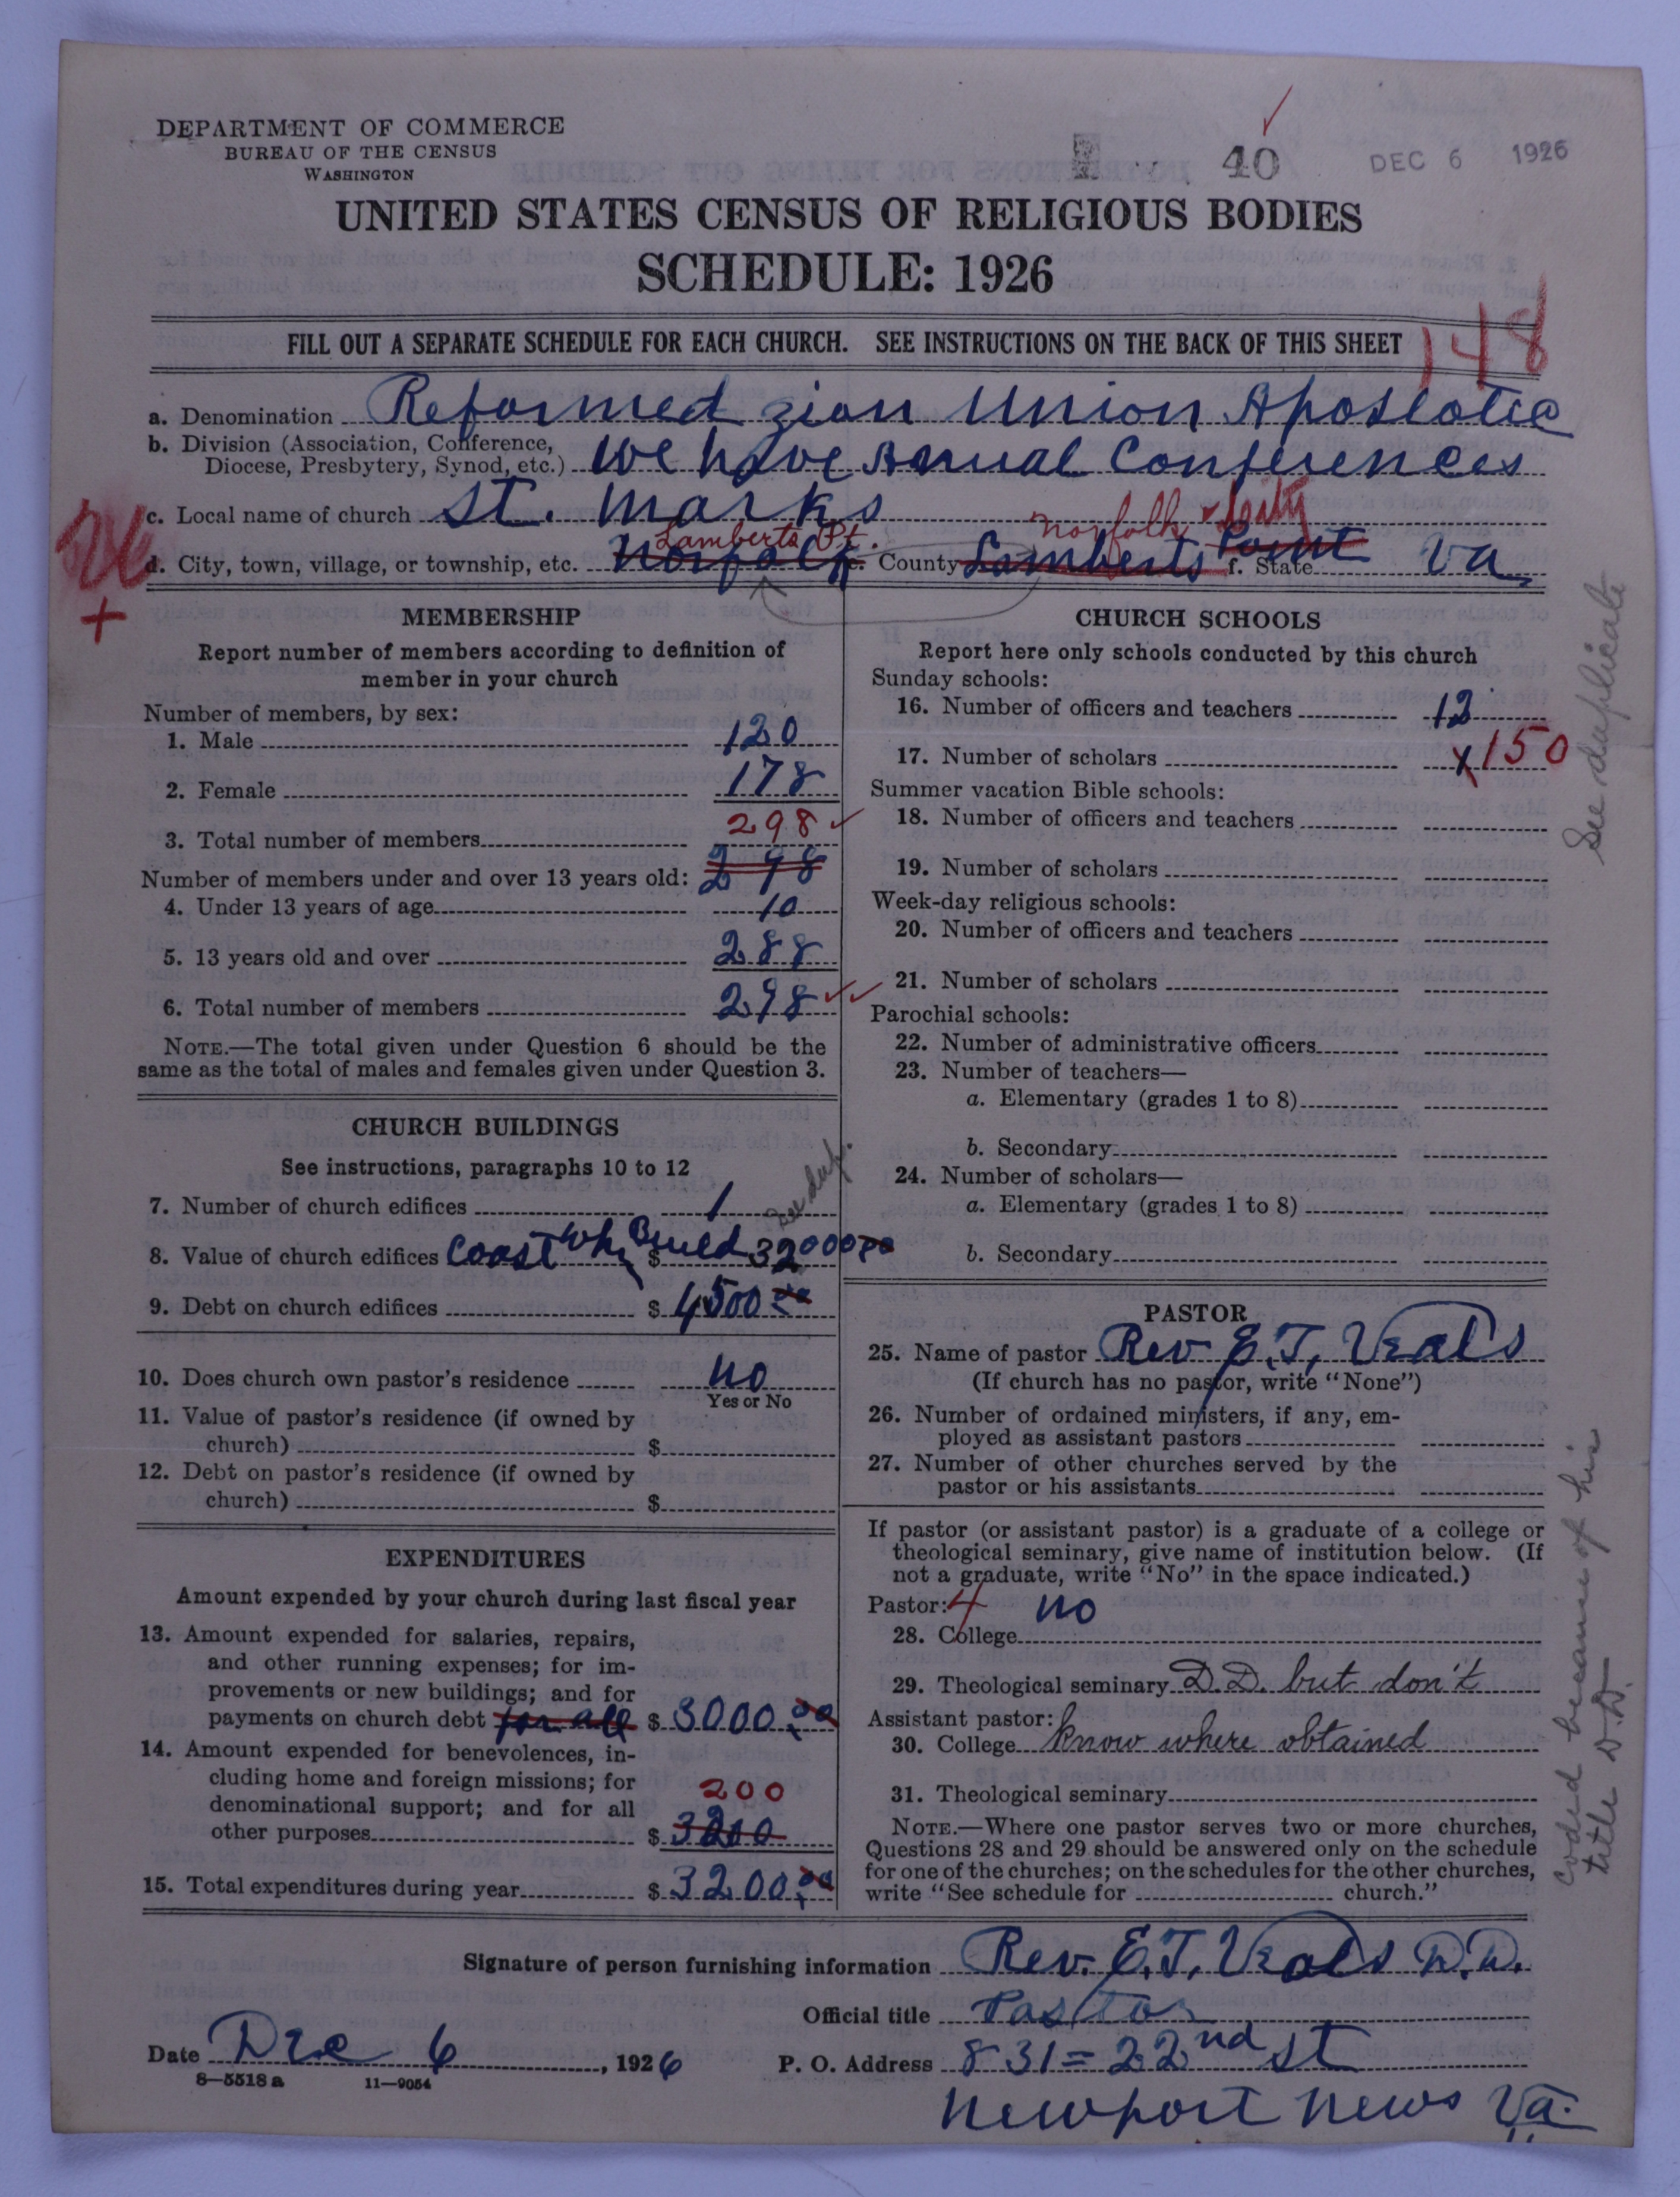 DEPARTMENT OF COMMERCE
BUREAU OF THE CENSUS
WASHINGTON
40 DEC 6 1926
UNITED STATES CENSUS OF RELIGIOUS BODIES
SCHEDULE: 1926
FILL OUT A SEPARATE SCHEDULE FOR EACH CHURCH. SEE INSTRUCTIONS ON THE BACK OF THIS SHEET 148
a. Denomination Reformed zion Union Apostolic
b. Division (Association, Conference,
Diocese, Presbytery, Synod, etc.) We have Annual Conferences
c. Local name of church St. Marks
Lamberts Pt. Norfolk City
d. City, town, village, or township, etc. Norfolk e. County Lamberts Point f. State Va
MEMBERSHIP
Report number of members according to definition of
member in your church
Number of members, by sex:
1. Male 120
2. Female 178
3. Total number of members 298
298
Number of members under and over 13 years old:
4. Under 13 years of age 10
5. 13 years old and over 288
6. Total number of members 298
NOTE.—The total given under Question 6 should be the
same as the total of males and females given under Question 3.
CHURCH BUILDINGS
See instructions, paragraphs 10 to 12
See dup.
7. Number of church edifices 1
8. Value of church edifices Coast Wh Build $ 32000.00
9. Debt on church edifices $ 4500.00
10. Does church own pastor's residence no
Yes or No
11. Value of pastor's residence (if owned by
church) $
12. Debt on pastor's residence (if owned by
church) $
EXPENDITURES
Amount expended by your church during last fiscal year
13. Amount expended for salaries, repairs,
and other running expenses; for im-
provements or new buildings; and for
payments on church debt for all $ 3000.00
14. Amount expended for benevolences, in-
cluding home and foreign missions; for
denominational support; and for all 200
other purposes $ 3200
15. Total expenditures during year $ 3200.00
CHURCH SCHOOLS
Report here only schools conducted by this church
Sunday schools:
16. Number of officers and teachers 12
17. Number of scholars x 150
Summer vacation Bible schools:
18. Number of officers and teachers
19. Number of scholars
Week-day religious schools:
20. Number of officers and teachers
21. Number of scholars
Parochial schools:
22. Number of administrative officers
23. Number of teachers—
a. Elementary (grades 1 to 8)
b. Secondary
24. Number of scholars—
a. Elementary (grades 1 to 8)
b. Secondary
See duplicate
PASTOR
25. Name of pastor Rev E.T. Veals
(If church has no pastor, write "None")
26. Number of ordained ministers, if any, em-
ployed as assistant pastors
27. Number of other churches served by the
pastor or his assistants
If pastor (or assistant pastor) is a graduate of a college or
theological seminary, give name of institution below. (If
not a graduate, write "No" in the space indicated.)
Pastor: 4 no
28. College
29. Theological seminary D.D. but don't
Assistant pastor:
30. College know where obtained
31. Theological seminary
NOTE.—Where one pastor serves two or more churches,
Questions 28 and 29 should be answered only on the schedule
for one of the churches; on the schedules for the other churches,
write "See schedule for church."
Coded because of his
title D.D.
Signature of person furnishing information Rev. E.T. Veals D.D.
Official title Pastor
Date Dec 6, 1926 P. O. Address 831=22nd St
8—5518 a 11—9054
Newport News Va.